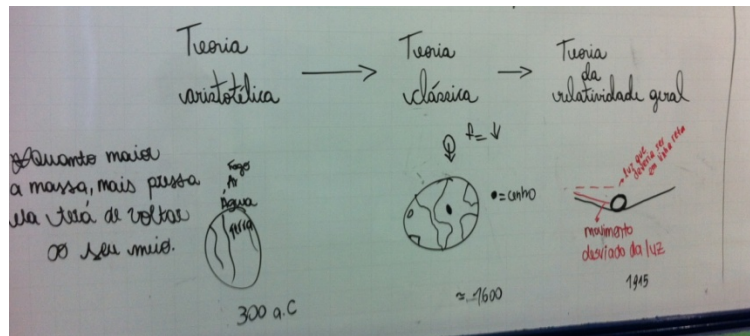 Teoria
aristotélica
Teoria
clássica
Teoria
da
relatividade geral
Quanto maior
a massa, mais pressa
ela terá de voltar
ao seu meio.
Fogo
Ar
Água
terra
300 a.C
= centro
≈ 1600
luz que
deveria ser
em linha reta
movimento
desviado da luz
1915